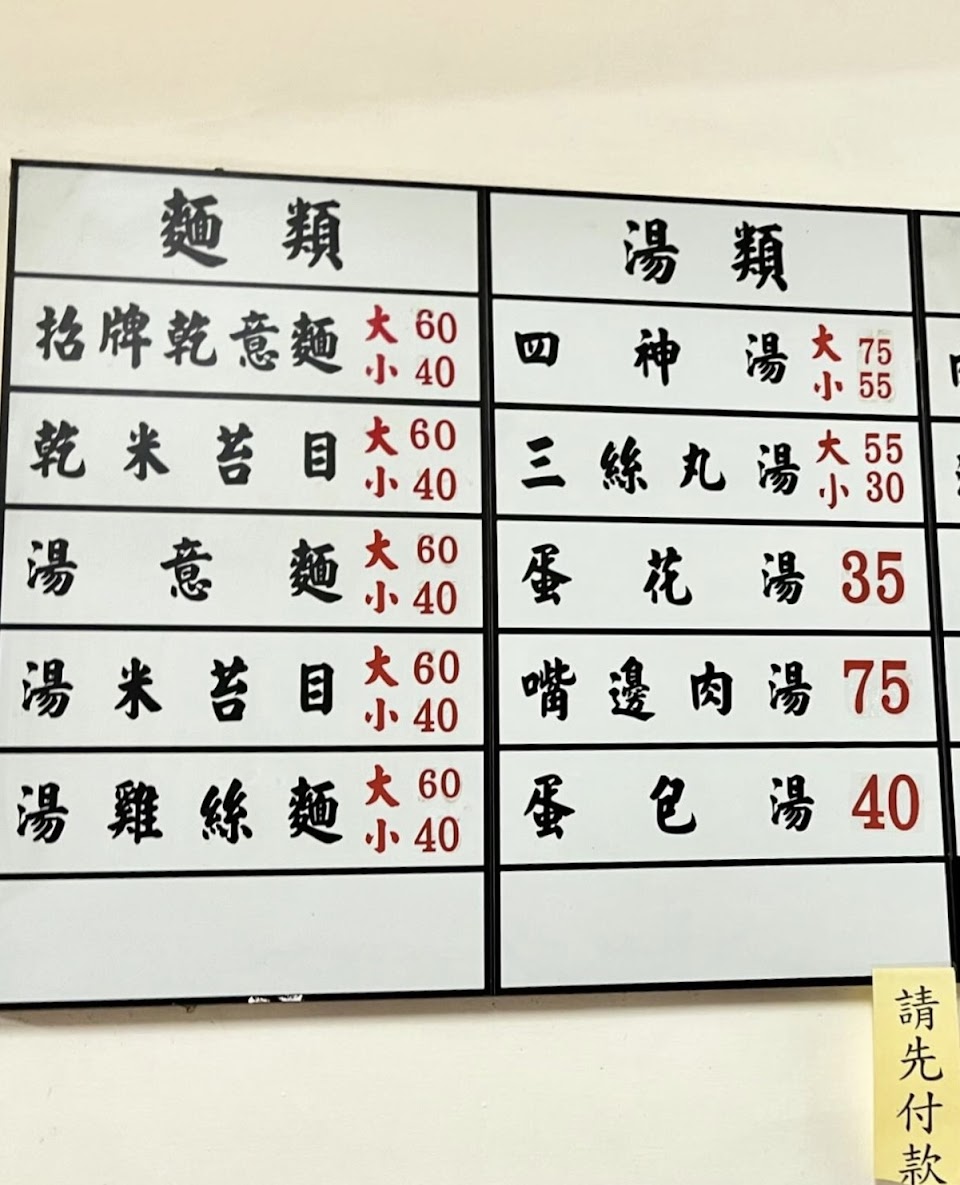 麵類
招牌乾意麵 大 60 小 40
乾米苔目 大 60 小 40
湯意麵 大 60 小 40
湯米苔目 大 60 小 40
湯雞絲麵 大 60 小 40
湯類
四神湯 大 75 小 55
三絲丸湯 大 55 小 30
蛋花湯 35
嘴邊肉湯 75
蛋包湯 40
請先付款